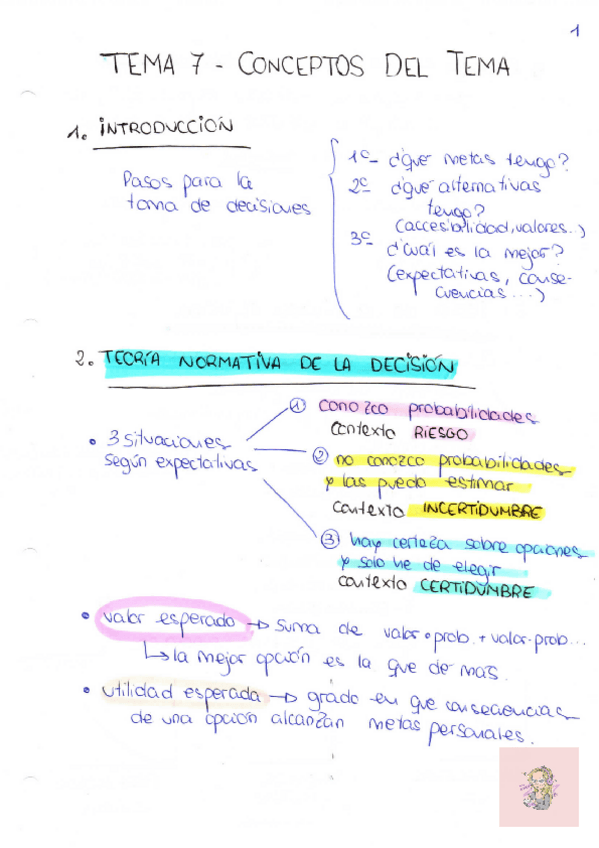 1
TEMA 7 - CONCEPTOS DEL TEMA
1. INTRODUCCIÓN
Pasos para la
toma de decisiones
1º- ¿qué metas tengo?
2º ¿qué alternativas
tengo?
(accesibilidad, valores..)
3º
¿cuál es la mejor?
(expectativas, conse-
cuencias...)
2. TEORÍA NORMATIVA DE LA DECISIÓN
• 3 situaciones
según expectativas
1 conozco probabilidades
contexto RIESGO
2 no conozco probabilidades
y las puedo estimar
contexto INCERTIDUMBRE
3 hay certeza sobre opciones
y solo he de elegir
contexto CERTIDUMBRE
• valor esperado → suma de valor·prob. + valor·prob...
↳ la mejor opción es la que de más.
• utilidad esperada → grado en que consecuencias
de una opción alcanzan metas personales.